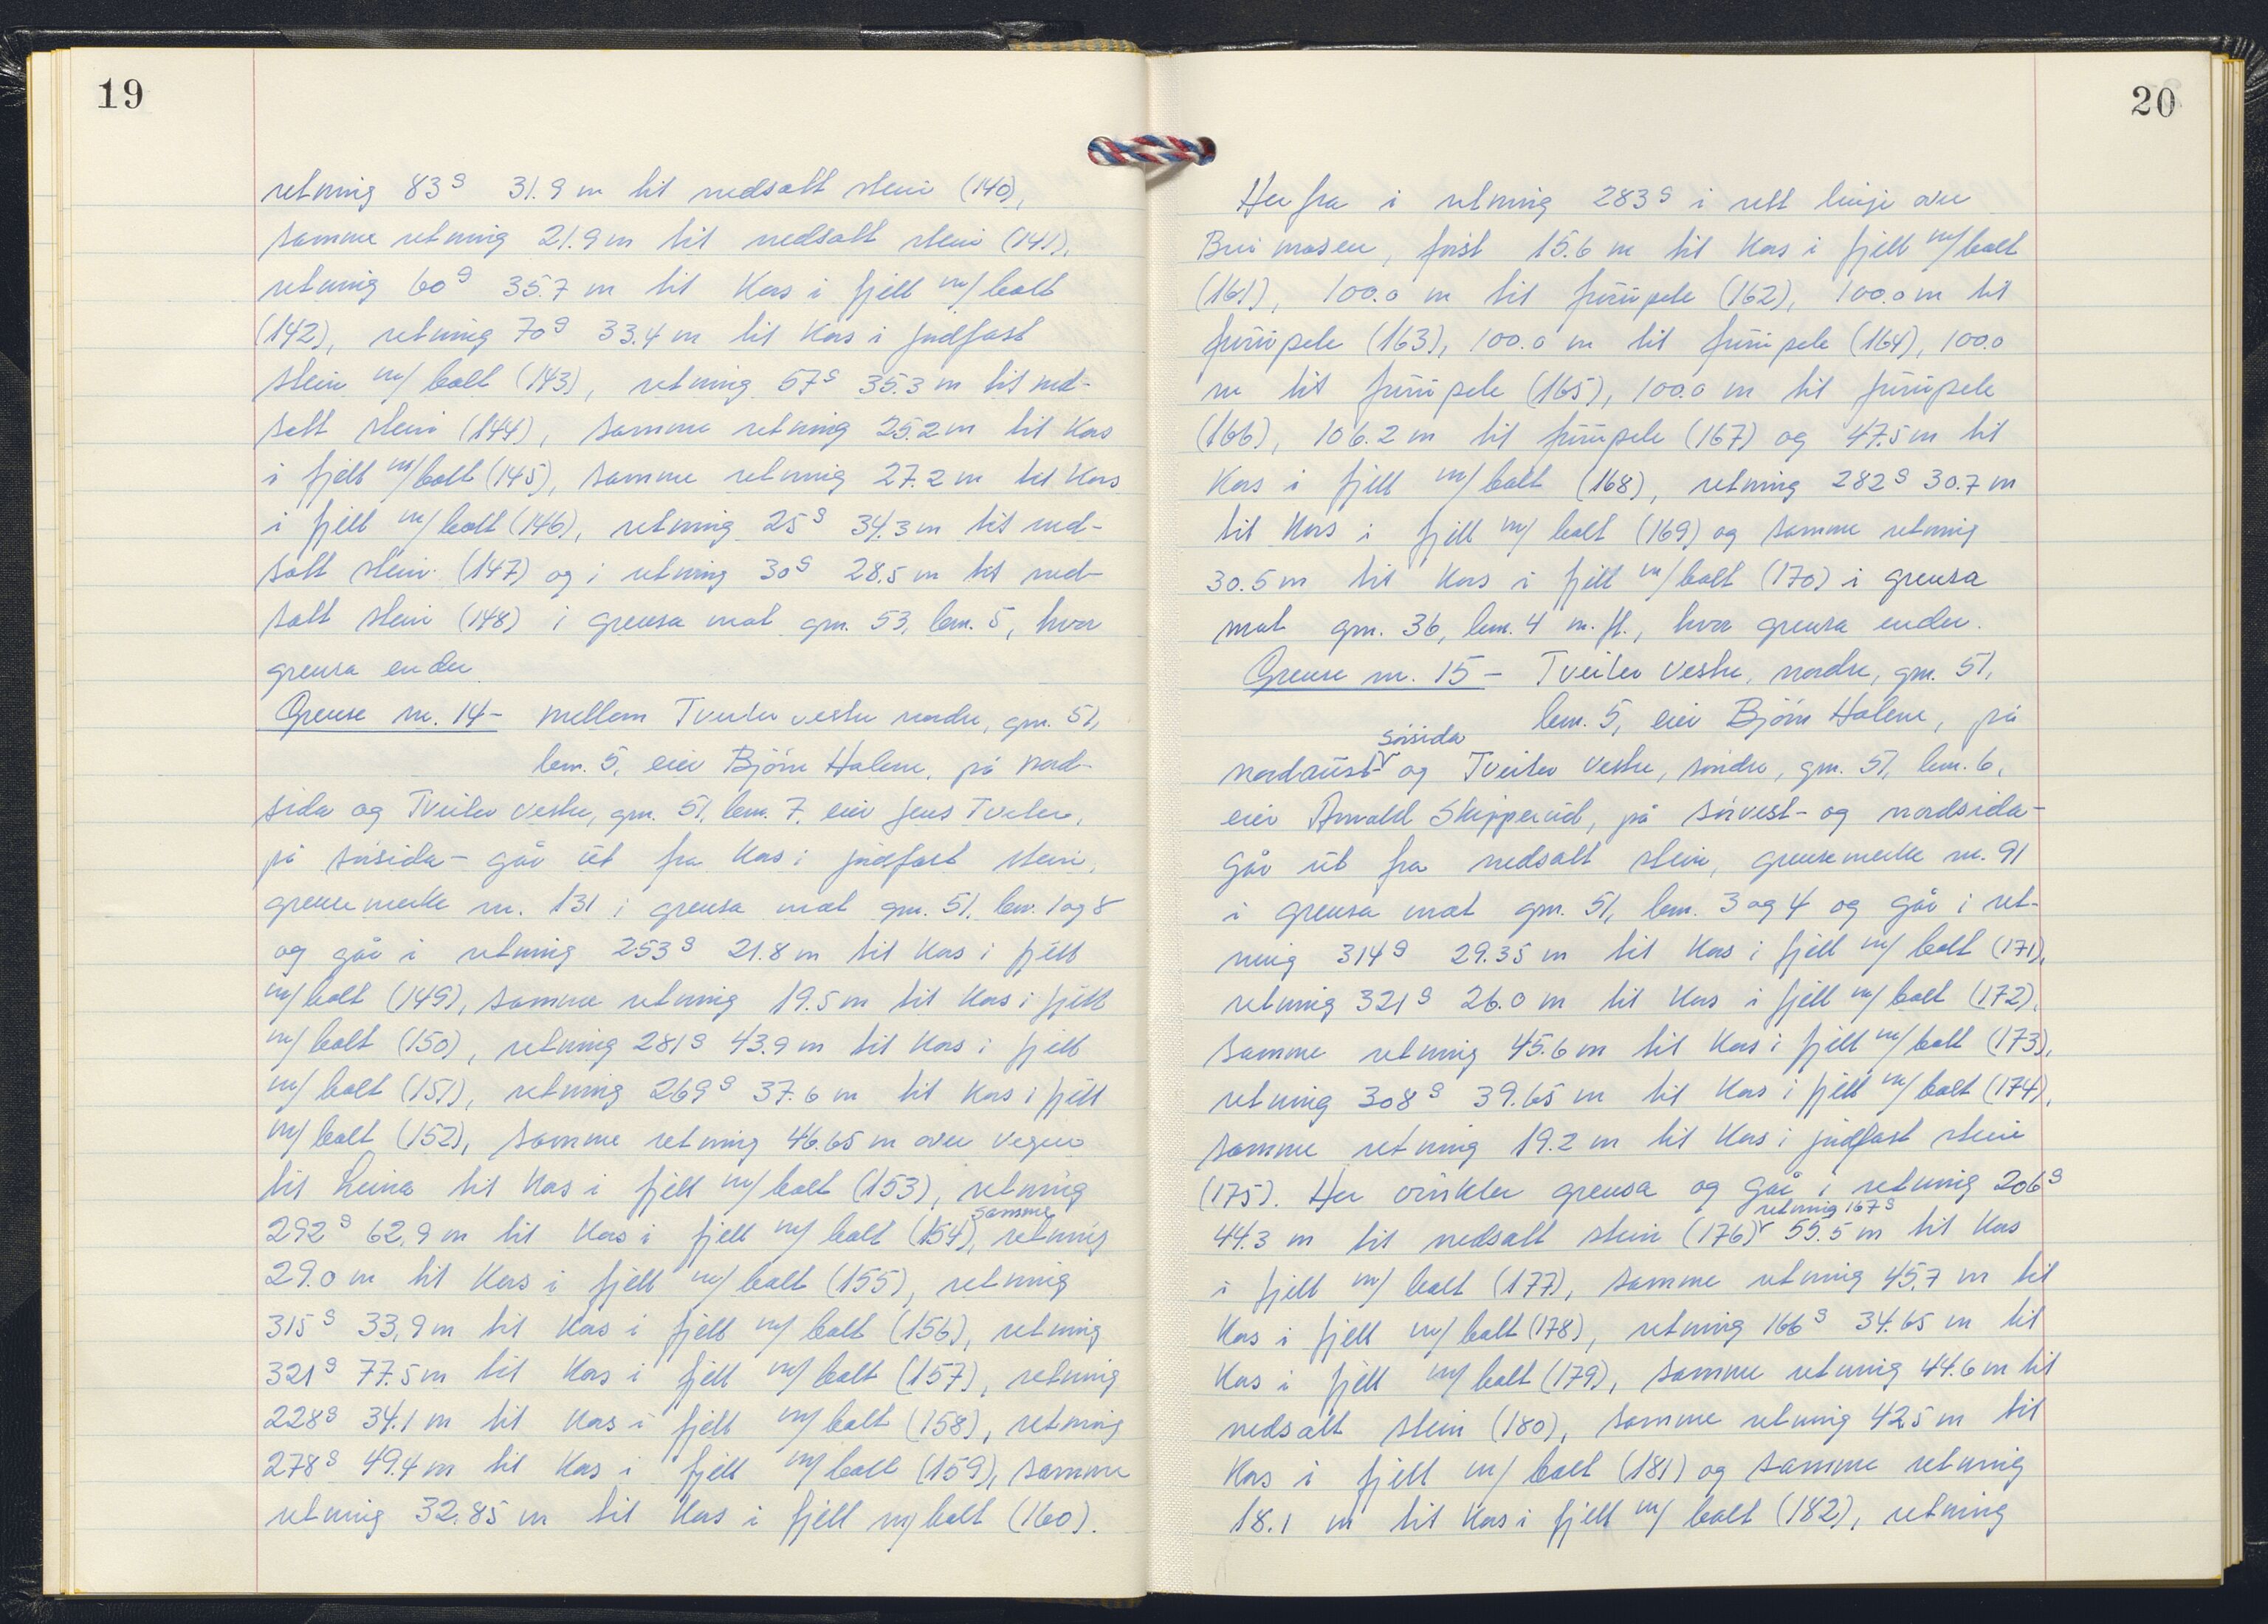 19
retning 83g 31.9 m til nedsatt stein (140),
samme retning 21.9 m til nedsatt stein (141),
retning 60g 35.7 m til kors i fjell m/bolt
(142), retning 70g 33.4 m til kors i jordfast
stein m/ bolt (143), retning 57g 35.3 m til ned-
satt stein (144), samme retning 25.2 m til kors
i fjell m/bolt (145), samme retning 27.2 m til kors
i fjell m/bolt (146), retning 25g 34.3 m til ned-
satt stein (147) og i retning 30g 28.5 m til ned-
satt stein (148) i grensa mot gnr. 53, bnr. 5, hvor
grensa ender
Grense nr. 14 - mellom Tveiter vestre nordre, gnr. 51,
bnr. 5, eier Bjørn Halene, på nord-
sida og Tveiter vestre, gnr. 51, bnr. 7, eier Jens Tveter,
på sørsida - går ut fra kors i jordfast stein,
grensemerke nr. 131 i grensa mot gnr. 51, bnr. 1 og 8
og går i retning 253g 21.8 m til kors i fjell
m/bolt (149), samme retning 19.5 m til kors i fjell
m/bolt (150), retning 281g 43.9 m til kors i fjell
m/ bolt (151), retning 269g 37.6 m til kors i fjell
m/bolt (152), samme retning 46.65 m over vegen
til Leina til kors i fjell m/bolt (153), retning
292g 62,9 m til kors i fjell m/ bolt (154), samme retning
29.0 m til kors i fjell m/ bolt (155), retning
315g 33,9 m til kors i fjell m/ bolt (156), retning
321g 77.5 m til kors i fjell m/ bolt (157), retning
228g 34.1 m til kors i fjell m/ bolt (158), retning
278g 49.4 m til kors i fjell m/bolt (159), samme
retning 32.85 m til kors i fjell m/bolt (160).
20
Her fra i retning 283g i rett linje over
Brii mosen, først 15.6 m til kors i fjell m/bolt
(161), 100.0 m til furupele (162), 100.0 m til
furupele (163), 100.0 m til furupele (164), 100.0
m til furupele (165), 100.0 m til furupele
(166), 106.2 m til furupele (167) og 47.5 m til
kors i fjell m/bolt (168), retning 282g 30.7 m
til kors i fjell m/ bolt (169) og samme retning
30.5 m til kors i fjell m/bolt (170) i grensa
mot gnr. 36, bnr. 4 m. fl., hvor grensa ender.
Grense nr. 15 - Tveiter vestre, nordre, gnr. 51,
bnr. 5, eier Bjørn Halene, på
nordaust- sørsida og Tveiter vestre, søndre, gnr. 51, bnr. 6,
eier Arvald Skipperud, på sørvest- og nordsida -
går ut fra nedsatt stein, grensemerke nr. 91
i grensa mot gnr. 51, bnr. 3 og 4 og går i ret-
ning 314g 29.35 m til kors i fjell m/ bolt (171),
retning 321g 26.0 m til kors i fjell m/ bolt (172),
samme retning 45.6 m til kors i fjell m/bolt (173),
retning 308g 39.65 m til kors i fjell m/bolt (174),
samme retning 19.2 m til kors i jordfast stein
(175). Her vinkler grensa og går i retning 206g
44.3 m til nedsatt stein (176) retning 167g 55.5 m til kors
i fjell m/ bolt (177), samme retning 45.7 m til
kors i fjell m/bolt (178), retning 166g 34.65 m til
kors i fjell m/ bolt (179), samme retning 44.6 m til
nedsatt stein (180), samme retning 42.5 m til
kors i fjell m/ bolt (181) og samme retning
18.1 m til kors i fjell m/ bolt (182), retning